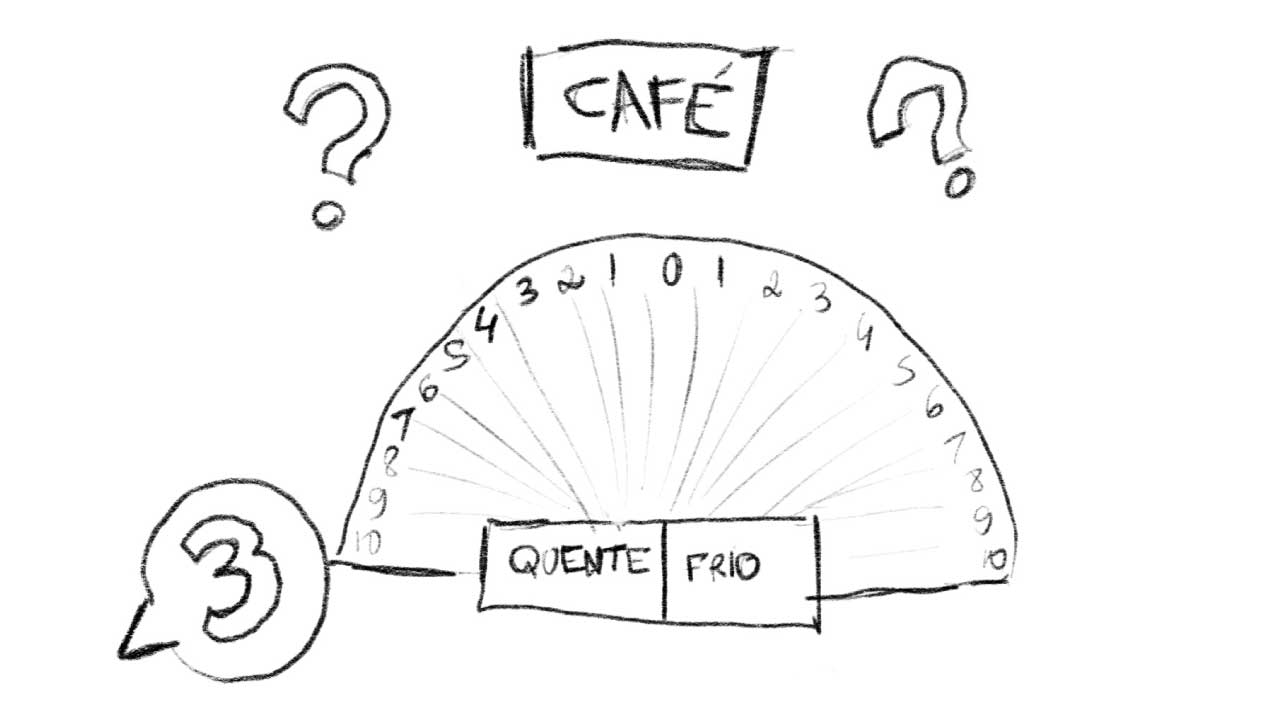 ? CAFÉ ?
10 9 8 7 6 5 4 3 2 1 0 1 2 3 4 5 6 7 8 9 10
QUENTE FRIO
3